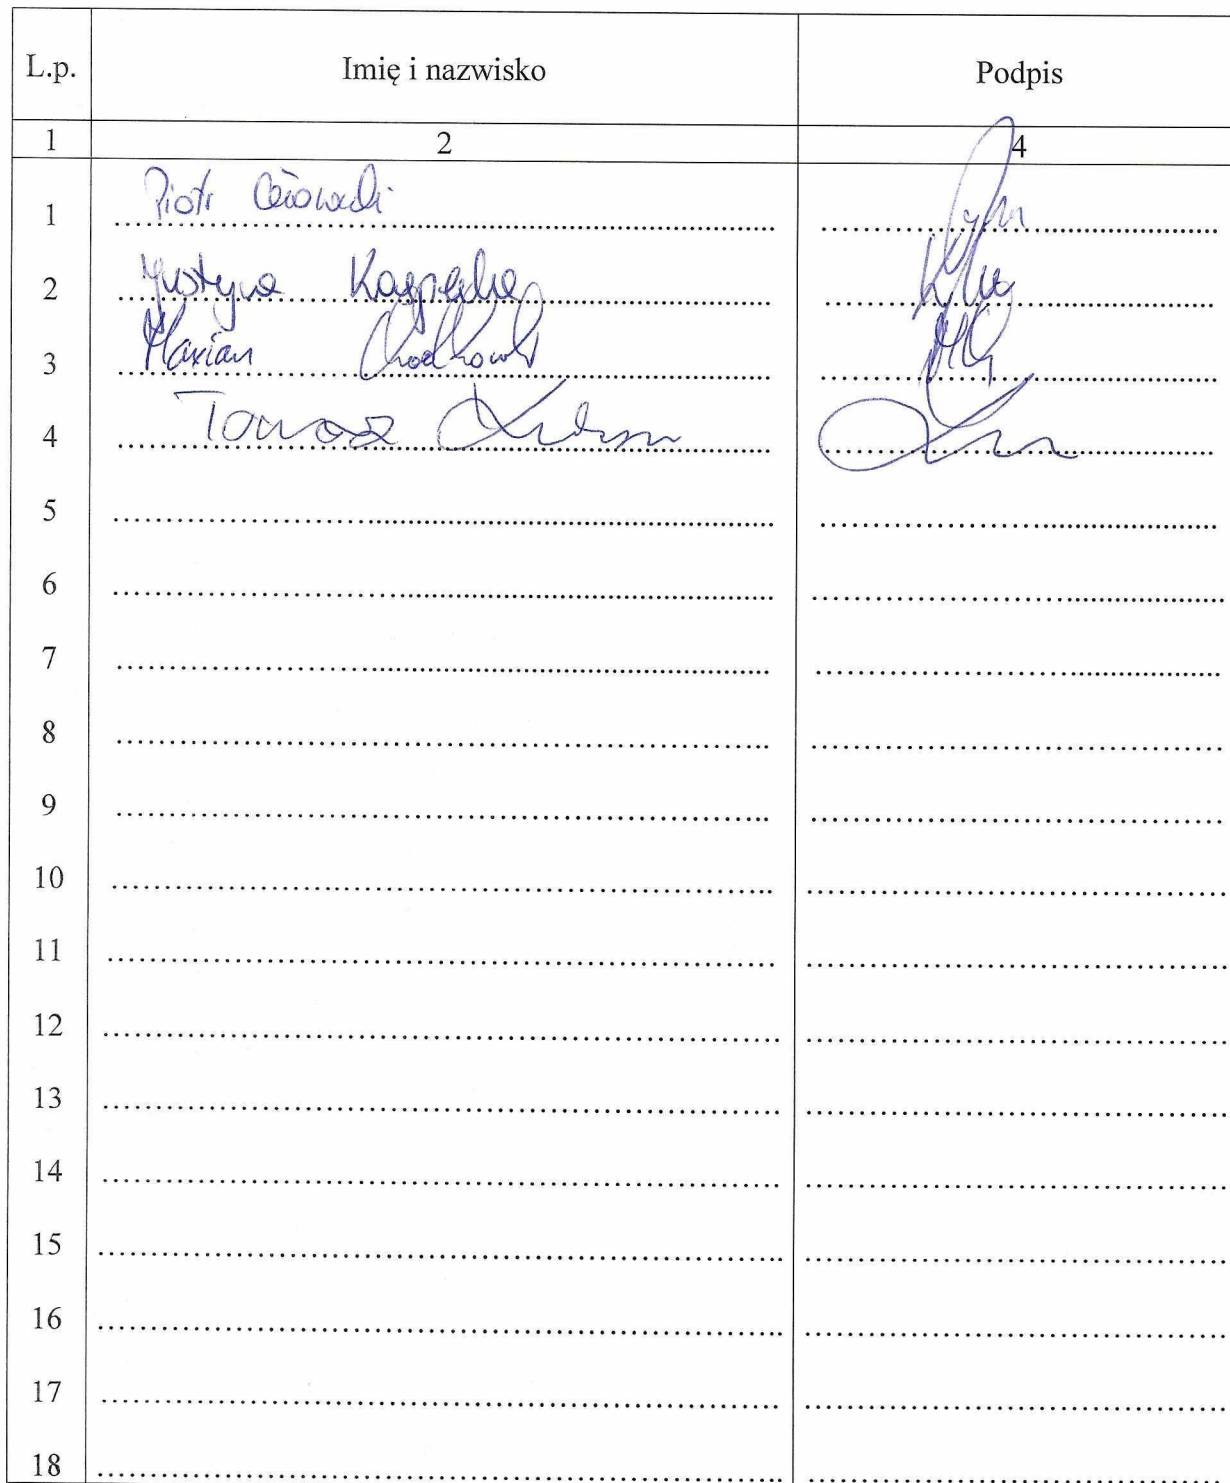 L.p. Imię i nazwisko Podpis
1 2 4
1 Piotr
2 Justyna
3 Marian Chodkowski
4 Tomasz
5
6
7
8
9
10
11
12
13
14
15
16
17
18